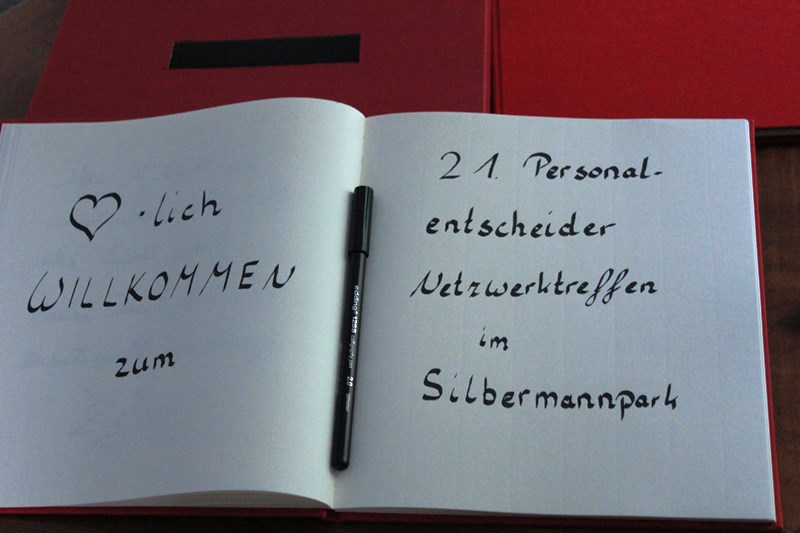 ♡-lich
WILLKOMMEN
zum
21. Personal-
entscheider
Netzwerktreffen
im
Silbermannpark
edding 1255